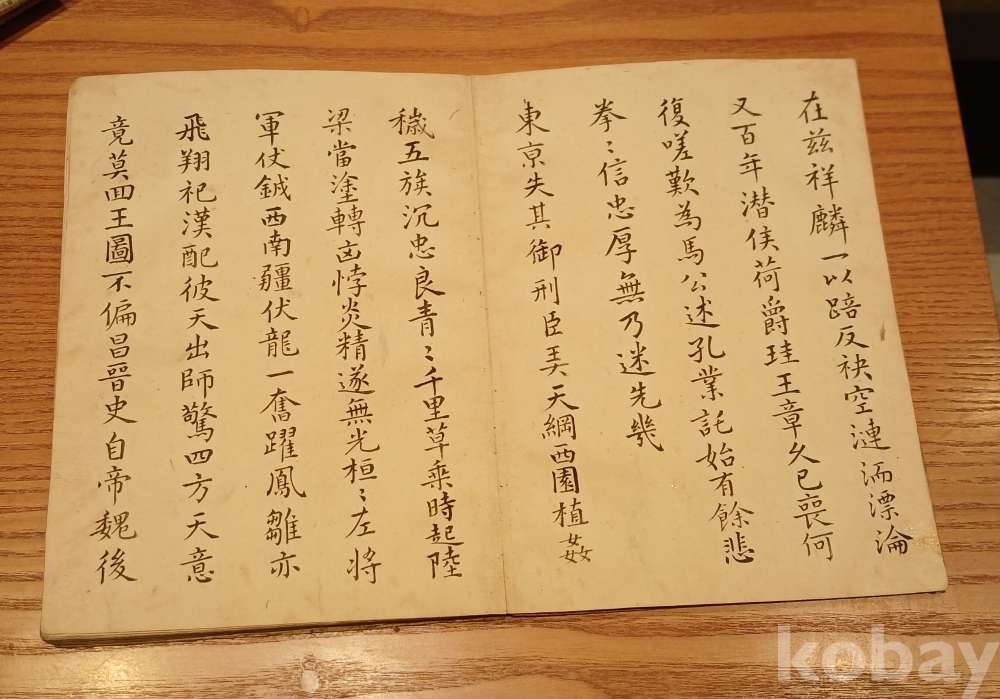 在茲祥麟一以踣反袂空漣洏漂淪
又百年潜侯荷爵珪王章久已喪何
復嗟歎為馬公述孔業託始有餘悲
拳〻信忠厚無乃迷先幾
東亰失其御刑臣弄天綱西園植姦
穢五族沉忠良青〻千里草乗時起陸
梁當塗轉凶悖炎精遂無光桓〻左將
軍仗鉞西南疆伏龍一奮躍鳳雛亦
飛翔祀漢配彼天出師驚四方天意
竟莫回王圖不偏昌晉史自帝魏後
kobay